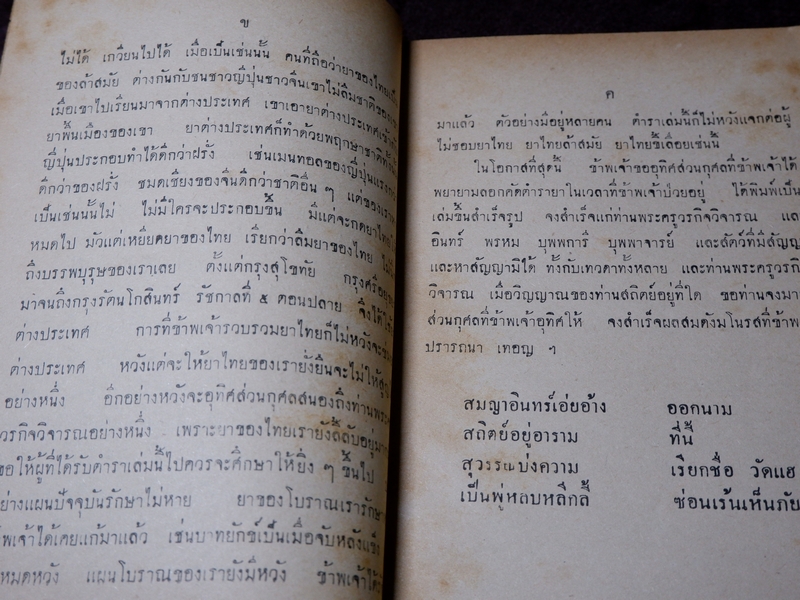 ข
ไม่ได้ เกวียนไปได้ เมื่อเป็นเช่นนั้น คนที่ถือว่ายาของไทยเป็น
ของล้าสมัย ต่างกันกับชนชาวญี่ปุ่นชาวจีนเขาไม่ลืมชาติของเขา
เมื่อเขาไปเรียนมาจากต่างประเทศ เขาเอายาต่างประเทศเข้า
ยาพื้นเมืองของเขา ยาต่างประเทศก็ทำด้วยพฤกษาชาติทั้งนั้น
ญี่ปุ่นประกอบทำได้ดีกว่าฝรั่ง เช่นเมนทอลของญี่ปุ่นแรง
ดีกว่าของฝรั่ง ชมดเชียงของจีนดีกว่าชาติอื่น ๆ แต่ของเรา
เป็นเช่นนั้นไม่ ไม่มีใครจะประกอบขึ้น มีแต่จะกดยาไทย
หมดไป มัวแต่เหยียดยาของไทย เรียกว่าลืมยาของไทย ไม่
ถึงบรรพบุรุษของเราเลย ตั้งแต่กรุงสุโขทัย กรุงศรีอยุธยา
มาจนถึงกรุงรัตนโกสินทร์ รัชกาลที่ ๕ ตอนปลาย จึงได้ใช้
ต่างประเทศ การที่ข้าพเจ้ารวบรวมยาไทยก็ไม่หวังจะ
ต่างประเทศ หวังแต่จะให้ยาไทยของเรายั่งยืนจะไม่ให้สูญ
อย่างหนึ่ง อีกอย่างหวังจะอุทิศส่วนกุศลสนองถึงท่านพระ
วรกิจวิจารณอย่างหนึ่ง เพราะยาของไทยเรายังลี้ลับอยู่มาก
ขอให้ผู้ที่ได้รับตำราเล่มนี้ไปควรจะศึกษาให้ยิ่ง ๆ ขึ้นไป
อย่างแผนปัจจุบันรักษาไม่หาย ยาของโบราณเรารักษา
พเจ้าได้เคยแก้มาแล้ว เช่นบาทยักษ์เป็นเมื่อจับหลังแข็ง
หมดหวัง แผนโบราณของเรายังมีหวัง ข้าพเจ้าได้
ค
มาแล้ว ตัวอย่างมีอยู่หลายคน ตำราเล่มนี้ก็ไม่หวังแจกต่อผู้
ไม่ชอบยาไทย ยาไทยล้าสมัย ยาไทยขี้เลื่อยเช่นนี้
ในโอกาสที่สุดนี้ ข้าพเจ้าขออุทิศส่วนกุศลที่ข้าพเจ้าได้
พยายามลอกคัดตำรายาในเวลาที่ข้าพเจ้าป่วยอยู่ ได้พิมพ์เป็น
เล่มขึ้นสำเร็จรูป จงสำเร็จแก่ท่านพระครูวรกิจวิจารณ แล
อินทร์ พรหม บุพพการี บุพพาจารย์ และสัตว์ที่มีสัญญ
และหาสัญญามิได้ ทั้งกับเทวดาทั้งหลาย และท่านพระครูวรกิ
วิจารณ เมื่อวิญญาณของท่านสถิตย์อยู่ที่ใด ขอท่านจงมา
ส่วนกุศลที่ข้าพเจ้าอุทิศให้ จงสำเร็จผลสมดังมโนรสที่ข้าพ
ปรารถนา เทอญ ฯ
สมญาอินทร์เอ่ยอ้าง ออกนาม
สถิตย์อยู่อาราม ที่นี้
สุวรรณบ่งความ เรียกชื่อ วัดแฮ
เป็นพู่หลบหลีกลี้ ซ่อนเร้นเห็นภัย